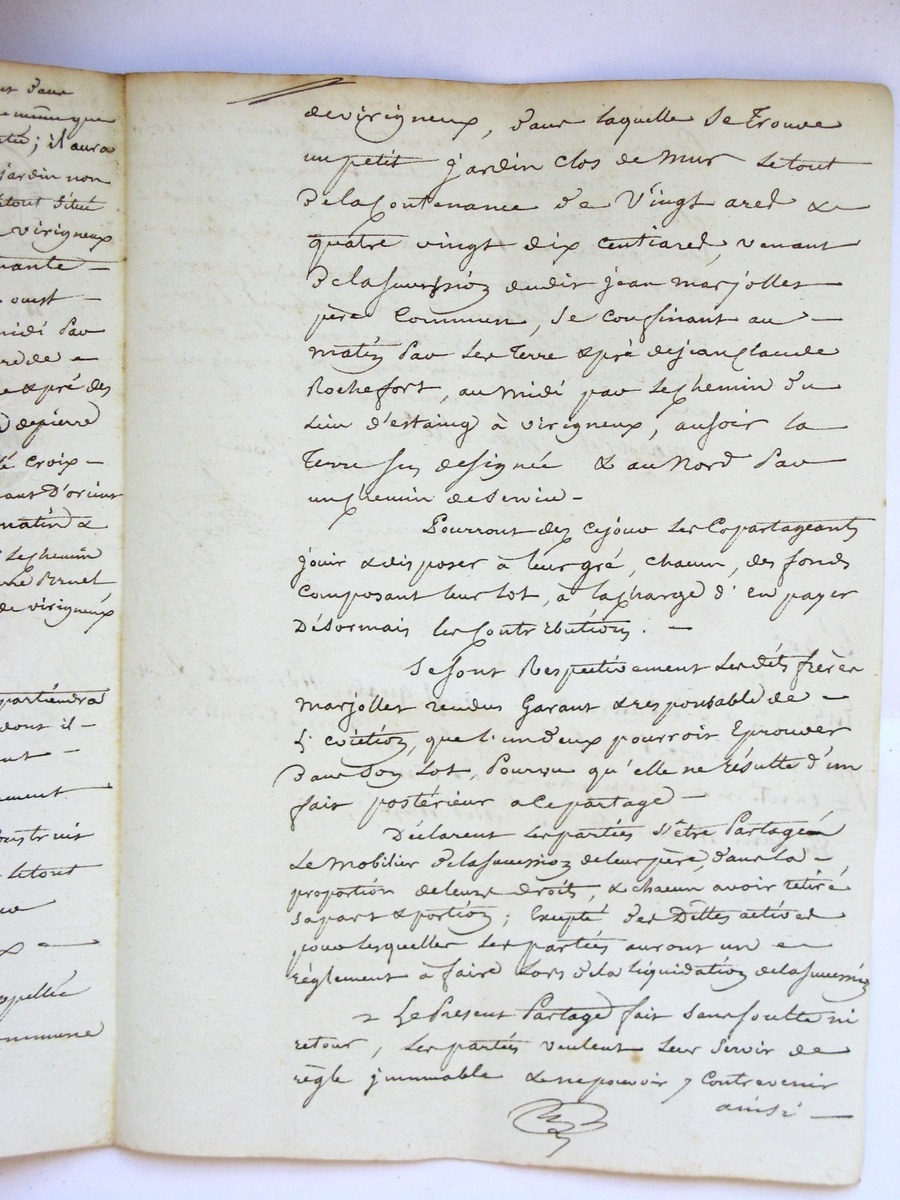 dans
mème que
; il aura
jardin non
letout situé
virigneux
nante —
ouest —
midi par
de
& pré des
de pierre
croix —
D'orient
matin &
le chemin
de virigneux
partiendra
dont il —
ment
onstruit
letout
&
appellée
commune
de virigneux, dans laquelle se trouve
un petit jardin clos de mur le tout
de la Contenance de Vingt ares &
quatre vingt dix centiares, venant
de la succession dudit jean marjollet
père Commun, se confinant au —
matin par les Terre & pré de jean claude
Rochefort, au midi par le chemin du
lieu d'estaing à virigneux, au soir la
Terre sus designée & au Nord par
un chemin de service —
Pourront des ce jour les Copartageants
jouir & disposer à leur gré, chacun, des fonds
composant leur lot, à la charge d'en payer
Désormais les Contributions. —
Se sont Respectivement les dits frères
marjollet rendus Garant & responsable de —
L'eviction, que l'un d'eux pourroit Eprouver
Dans son Lot, Pourvu qu'elle ne résulte d'un
fait postérieur a ce partage —
Déclarent les parties s'être Partagés
Le Mobilier de la succession de leur père, dans la —
proportion de leurs droits, & chacun avoir retiré
sa part & portion; Excepté des Dettes actives
pour lesquelles les parties auront un
règlement à faire lors de la liquidation de la succession
Le Present Partage fait sans soulte ni
retour, les parties veulent leur servir de
règle jmmuable & ne pouvoir y Contrevenir
ainsi —